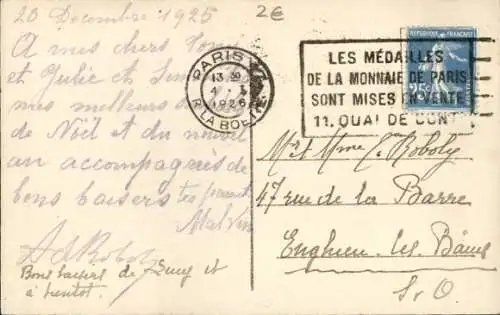 20 Decembre 1925
2€
A mes chers
et Julie et
mes meilleurs
de Noël et du nouvel
an accompagnés de
bons baisers
Bons baisers de et
à bientôt.
PARIS
13
4
1926
R. LA BOETIE
LES MÉDAILLES
DE LA MONNAIE DE PARIS
SONT MISES EN VENTE
11, QUAI DE CONTI
REPUBLIQUE FRANÇAISE
25c
Mr et Mme E. Roboly
47 rue de la Barre
Enghien les Bains
S. O